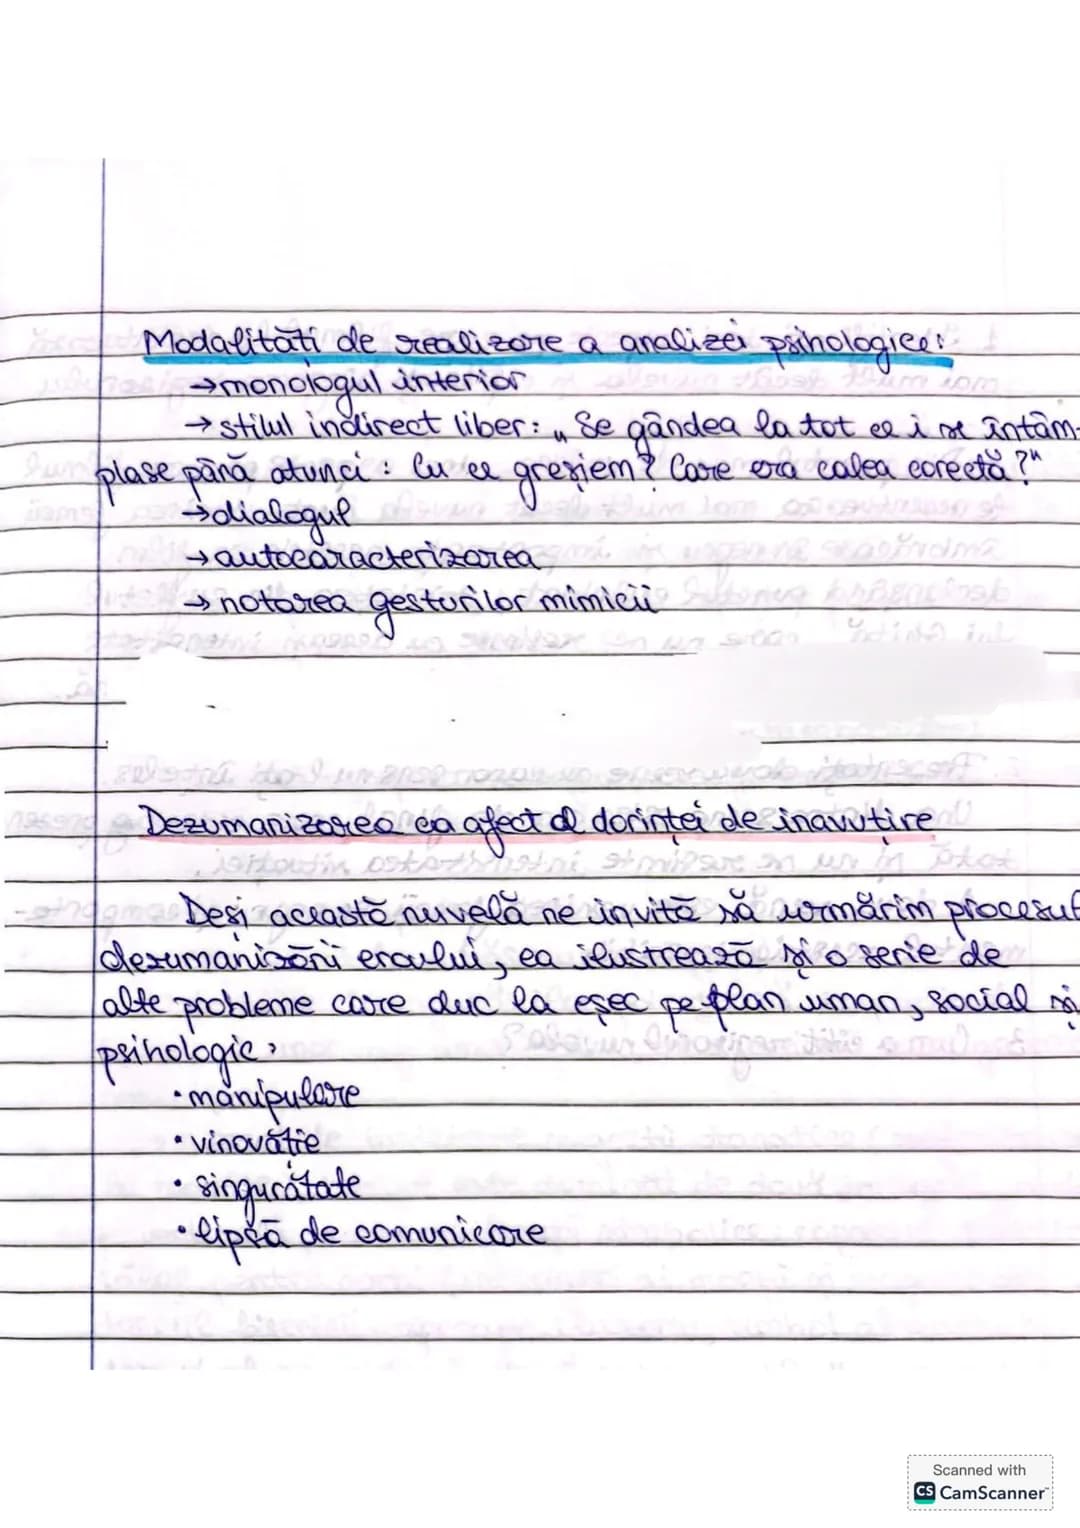 Modalități de realizare a analizei psihologice:
→monologul interior
→stilul indirect liber: „Se gândea la tot ce i se întâm-
plase până atunci: Cu ce greșiem? Care era calea corectă?"
→dialogul
→autocaracterizarea
→notarea gesturilor mimicii
Dezumanizarea ca afect al dorinței de inavuțire
Deși această nuvelă ne invită să urmărim procesul
dezumanizării eroului, ea ilustrează și o serie de
alte probleme care duc la eșec pe plan uman, social și
psihologic:
•manipulare
•vinovăție
•singurătate
•lipsă de comunicare
Scanned with
CS CamScanner